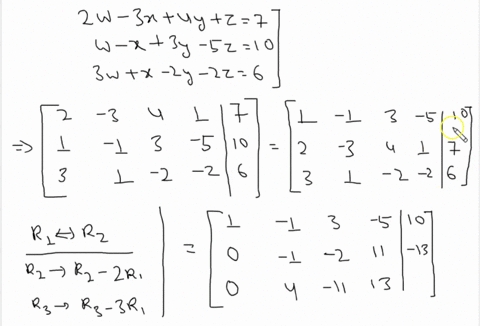 2w-3x+4y+z=7
w-x+3y-5z=10
3w+x-2y-2z=6
=> [2 -3 4 1 | 7] = [1 -1 3 -5 | 10]
[1 -1 3 -5 | 10] [2 -3 4 1 | 7]
[3 1 -2 -2 | 6] [3 1 -2 -2 | 6]
R1 <-> R2
R2 -> R2 - 2R1
R3 -> R3 - 3R1
= [1 -1 3 -5 | 10]
[0 -1 -2 11 | -13]
[0 4 -11 13 |]